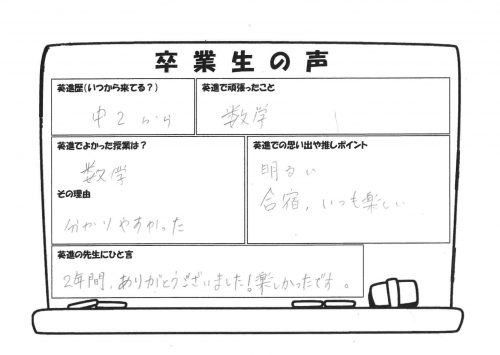 卒業生の声
英進歴(いつから来てる?)
中2から
英進で頑張ったこと
数学
英進でよかった授業は?
数学
その理由
分かりやすかった
英進での思い出や推しポイント
明るい
合宿、いつも楽しい
英進の先生にひと言
2年間、ありがとうございました!楽しかったです。